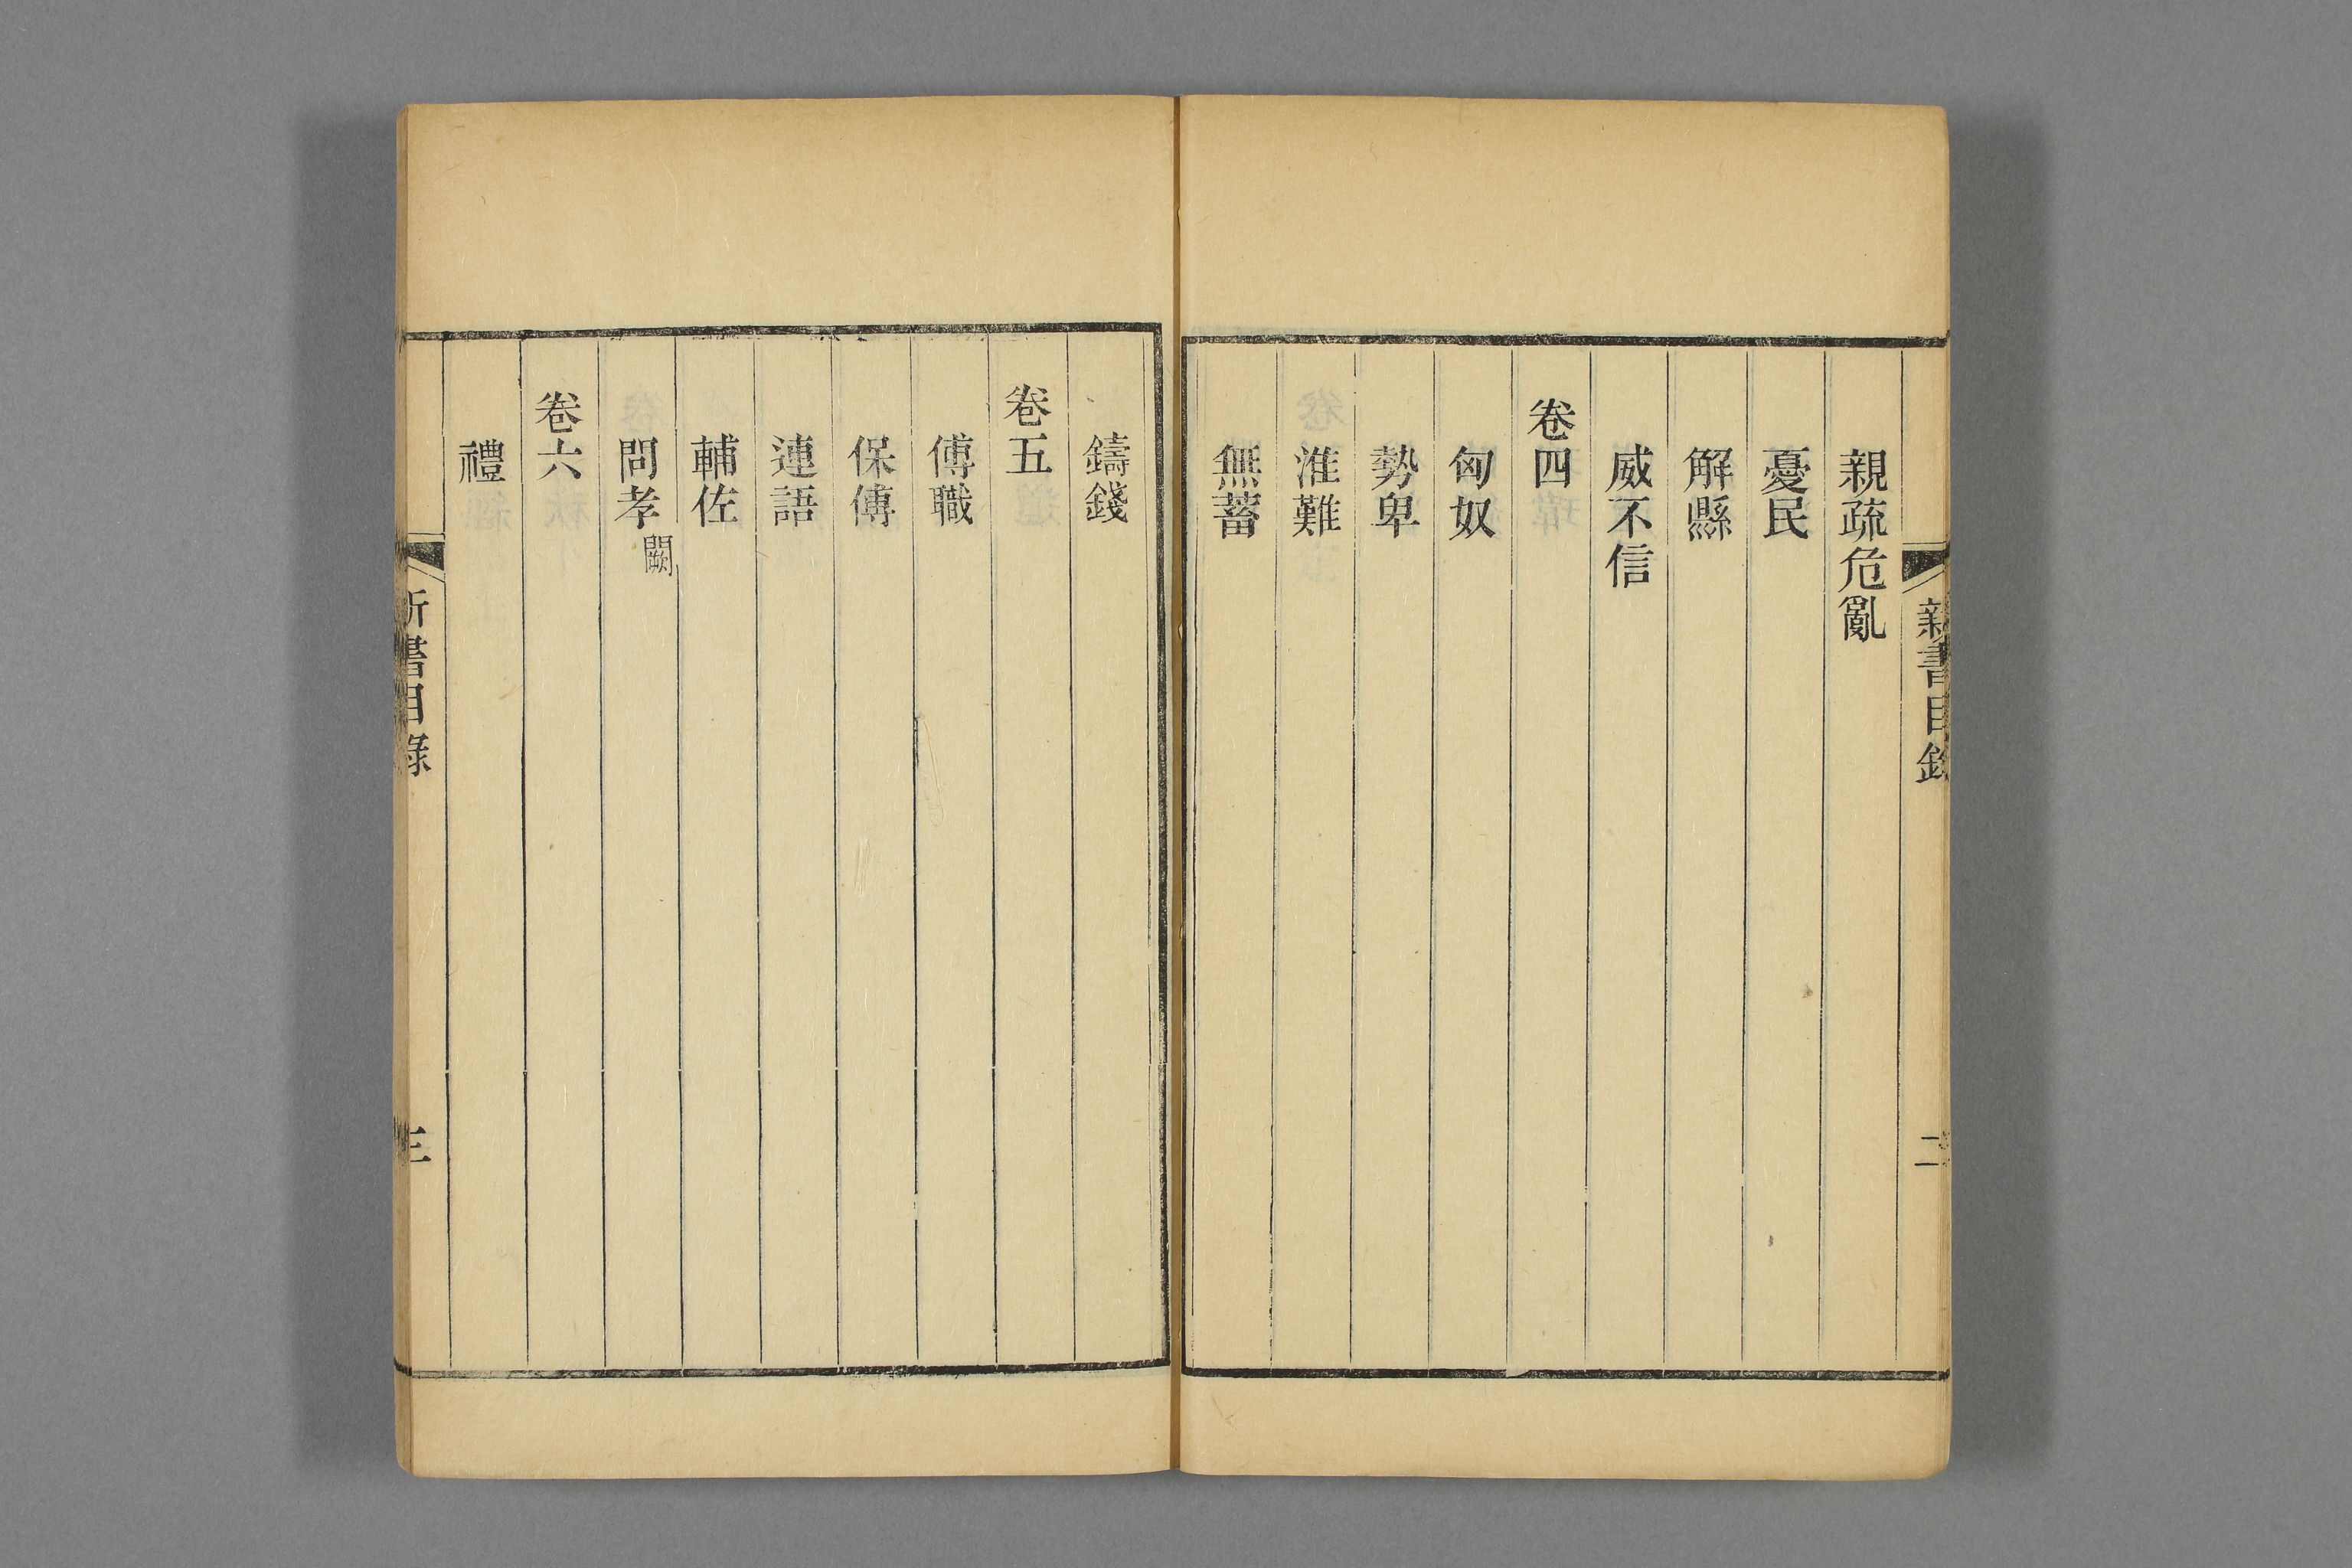 新書目錄
二
親疏危亂
憂民
解縣
威不信
卷四
匈奴
勢卑
淮難
無蓄
鑄錢
卷五
傅職
保傅
連語
輔佐
問孝闕
卷六
禮
新書目錄
三